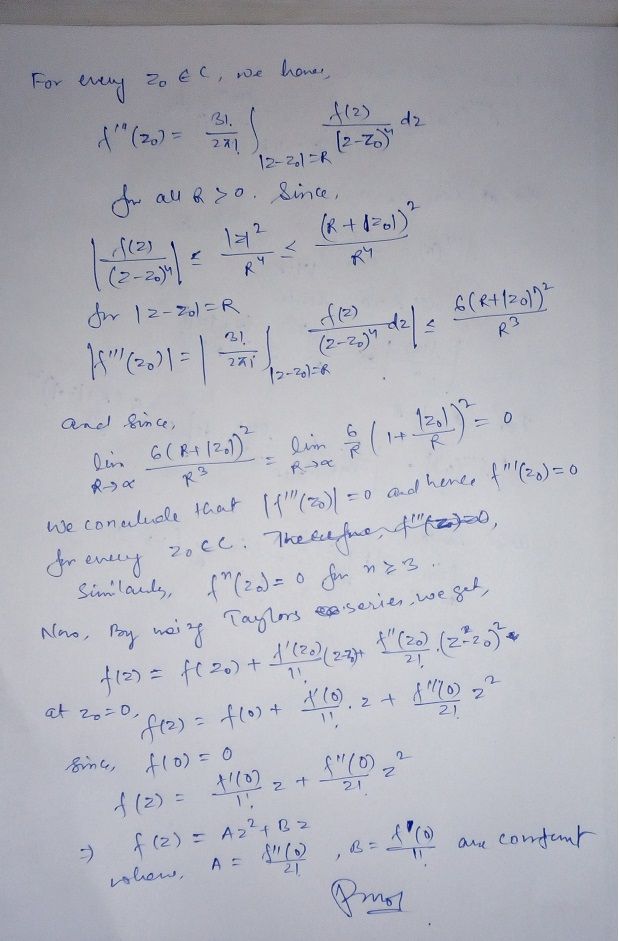 For every z₀ ∈ C, we have,
f'''(z₀) = 3!/2πi ∫_{|z-z₀|=R} f(z)/(z-z₀)⁴ dz
for all R > 0. Since,
|f(z)/(z-z₀)⁴| ≤ |z|²/R⁴ ≤ (R+|z₀|)²/R⁴
for |z-z₀|=R
|f'''(z₀)| = |3!/2πi ∫_{|z-z₀|=R} f(z)/(z-z₀)⁴ dz| ≤ 6(R+|z₀|)²/R³
and since,
lim_{R→∞} 6(R+|z₀|)²/R³ = lim_{R→∞} 6/R (1+|z₀|/R)² = 0
we conclude that |f'''(z₀)| = 0 and hence f'''(z₀)=0
for every z₀ ∈ C. Therefore, f'''(z₀)=0,
Similarly, fⁿ(z₀) = 0 for n ≥ 3.
Now, By using Taylors series, we get,
f(z) = f(z₀) + f'(z₀)/1! (z-z₀) + f''(z₀)/2! . (z-z₀)²
at z₀=0, f(z) = f(0) + f'(0)/1! . z + f''(0)/2! z²
Since, f(0) = 0
f(z) = f'(0)/1! z + f''(0)/2! z²
⇒ f(z) = Az² + Bz
where, A = f''(0)/2! , B = f'(0)/1! are constant